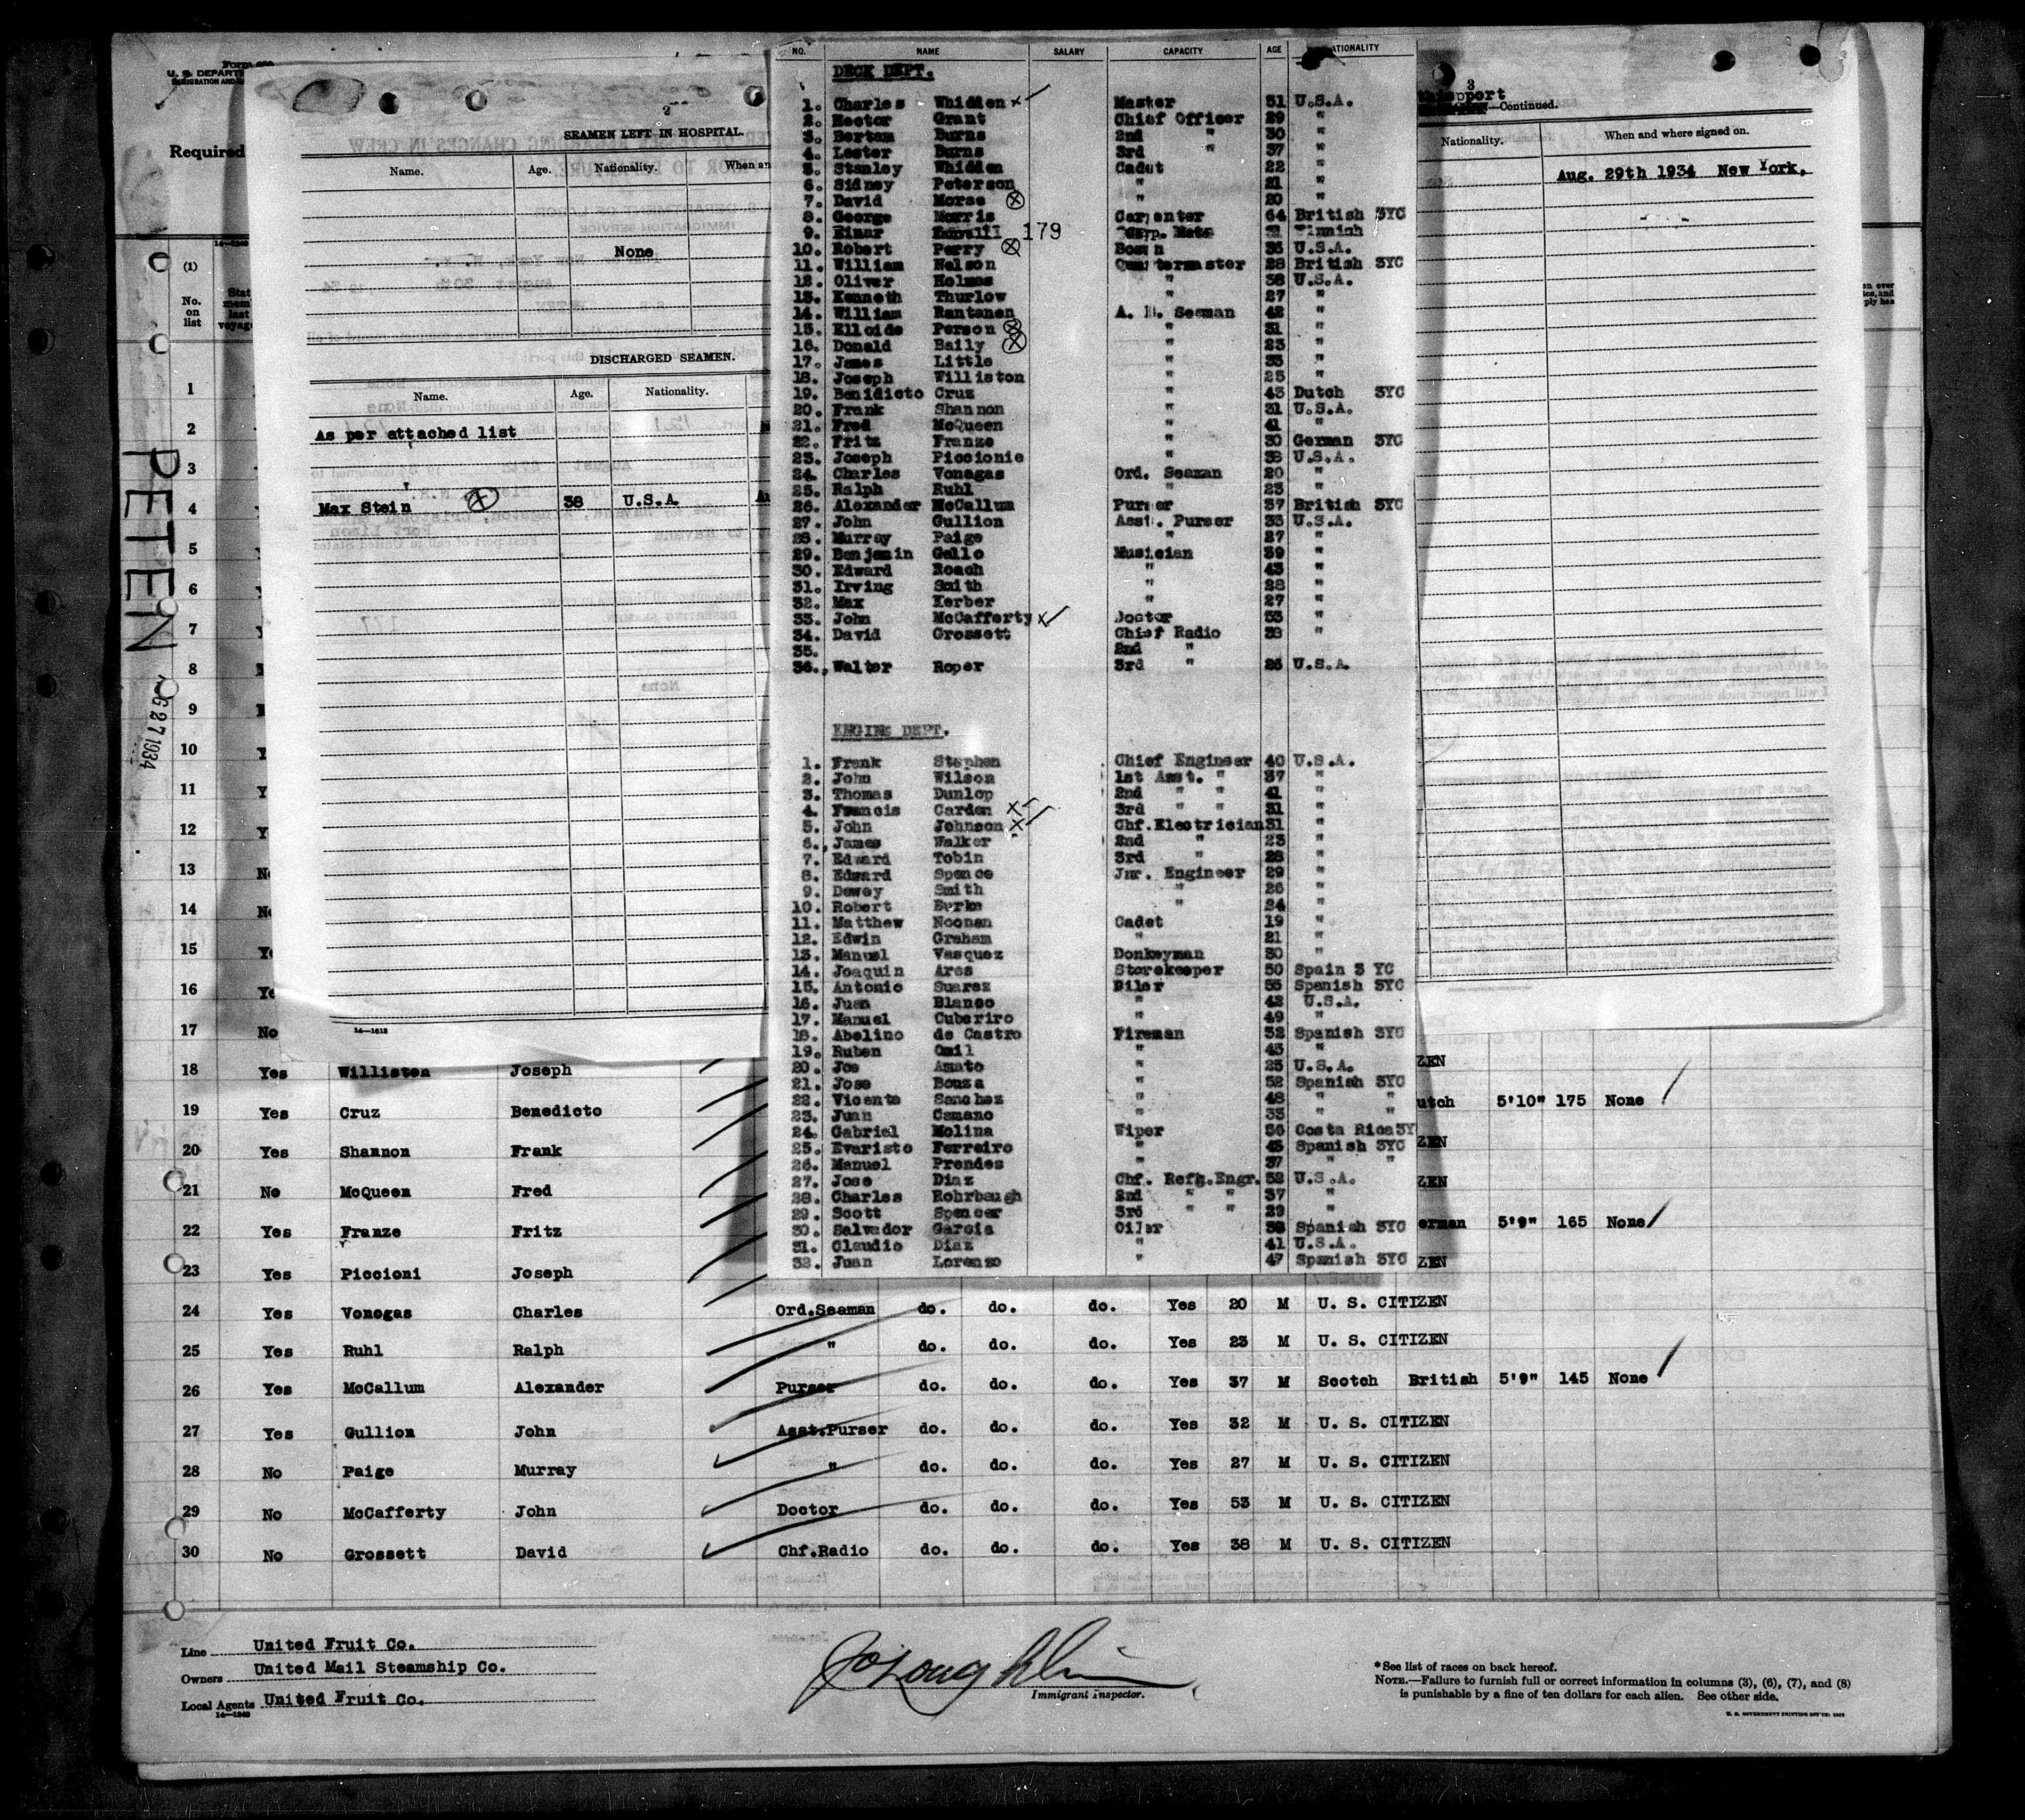 U. S. DEPART
Required
(1)
No. on list
1
2
3
4
5
6
7
8
9
10
11
12
13
14
15
16
17 No
PETEN
27 1934
2
SEAMEN LEFT IN HOSPITAL.
Name. Age. Nationality. When an
None
DISCHARGED SEAMEN.
Name. Age. Nationality.
As per attached list
Max Stein 38 U.S.A.
14—1613
NO. NAME SALARY CAPACITY AGE NATIONALITY
DECK DEPT.
1. Charles Whidden Master 51 U.S.A.
2. Hector Grant Chief Officer 29 "
3. Bertam Burns 2nd " 30 "
4. Lester Burns 3rd " 37 "
5. Stanley Whidden Cadet 22 "
6. Sidney Peterson " 21 "
7. David Morse " 20 "
8. George Morris Carpenter 64 British 3YC
9. Einar 179 Carp. Mate Finnish
10. Robert Perry Bosun 36 U.S.A.
11. William Nelson Quartermaster 28 British 3YC
12. Oliver Holmes " 38 U.S.A.
13. Kenneth Thurlow " 27 "
14. William Rantanen A. B. Seaman 42 "
15. Elloide Person " 31 "
16. Donald Baily " 23 "
17. James Little " 33 "
18. Joseph Williston " 25 "
19. Benidicto Cruz " 43 Dutch 3YC
20. Frank Shannon " 31 U.S.A.
21. Fred McQueen " 41 "
22. Fritz Franze " 30 German 3YC
23. Joseph Piccionie " 38 U.S.A.
24. Charles Vonagas Ord. Seaman 20 "
25. Ralph Ruhl " 23 "
26. Alexander McCallum Purser 37 British 3YC
27. John Gullion Asst. Purser 33 U.S.A.
28. Murray Paige " 27 "
29. Benjamin Gallo Musician 39 "
30. Edward Roach " 43 "
31. Irving Smith " 28 "
32. Max Kerber " 27 "
33. John McCafferty Doctor 53 "
34. David Grossett Chief Radio 38 "
35. 2nd "
36. Walter Roper 3rd " 26 U.S.A.
ENGINE DEPT.
1. Frank Stephen Chief Engineer 40 U.S.A.
2. John Wilson 1st Asst. " 37 "
3. Thomas Dunlop 2nd " " 41 "
4. Francis Carden 3rd " " 31 "
5. John Johnson Chf.Electrician 31 "
6. James Walker 2nd " 23 "
7. Edward Tobin 3rd " 28 "
8. Edward Spence Jnr. Engineer 29 "
9. Dewey Smith " 26 "
10. Robert Burke " 24 "
11. Matthew Noonan Cadet 19 "
12. Edwin Graham " 21 "
13. Manuel Vasquez Donkeyman 30 "
14. Joaquin Ares Storekeeper 50 Spain 3 YC
15. Antonio Suarez Oiler 55 Spanish 3YC
16. Juan Blanco " 42 U.S.A.
17. Manuel Cuberiro " 49 "
18. Abelino de Castro Fireman 32 Spanish 3YC
19. Ruben Omil " 43 "
20. Joe Amato " 25 U.S.A.
21. Jose Bouza " 52 Spanish 3YC
22. Vicente Sanchez " 48 " "
23. Juan Camano " 33 " "
24. Gabriel Molina Wiper 36 Costa Rica3Y
25. Evaristo Ferreiro " 43 Spanish 3YC
26. Manuel Prendes " 37 " "
27. Jose Diaz Chf. Refg.Engr. 52 U.S.A.
28. Charles Rohrbaugh 2nd " " 37 "
29. Scott Spencer 3rd " " 29 "
30. Salvador Garcia Oiler 38 Spanish 3YC
31. Claudio Diaz " 41 U.S.A.
32. Juan Lorenzo " 47 Spanish 3YC
3
port
—Continued.
Nationality. When and where signed on.
Aug. 29th 1934 New York.
18 Yes Williston Joseph ZEN
19 Yes Cruz Benedicto utch 5'10" 175 None
20 Yes Shannon Frank ZEN
21 No McQueen Fred ZEN
22 Yes Franze Fritz erman 5'9" 165 None
23 Yes Piccioni Joseph ZEN
24 Yes Vonogas Charles Ord.Seaman do. do. do. Yes 20 M U. S. CITIZEN
25 Yes Ruhl Ralph " do. do. do. Yes 23 M U. S. CITIZEN
26 Yes McCallum Alexander Purser do. do. do. Yes 37 M Scotch British 5'9" 145 None
27 Yes Gullion John Asst.Purser do. do. do. Yes 32 M U. S. CITIZEN
28 No Paige Murray " do. do. do. Yes 27 M U. S. CITIZEN
29 No McCafferty John Doctor do. do. do. Yes 53 M U. S. CITIZEN
30 No Grossett David Chf.Radio do. do. do. Yes 38 M U. S. CITIZEN
Line United Fruit Co.
Owners United Mail Steamship Co.
Local Agents United Fruit Co.
14—1240
Immigrant Inspector.
*See list of races on back hereof.
NOTE.—Failure to furnish full or correct information in columns (3), (6), (7), and (8)
is punishable by a fine of ten dollars for each alien. See other side.